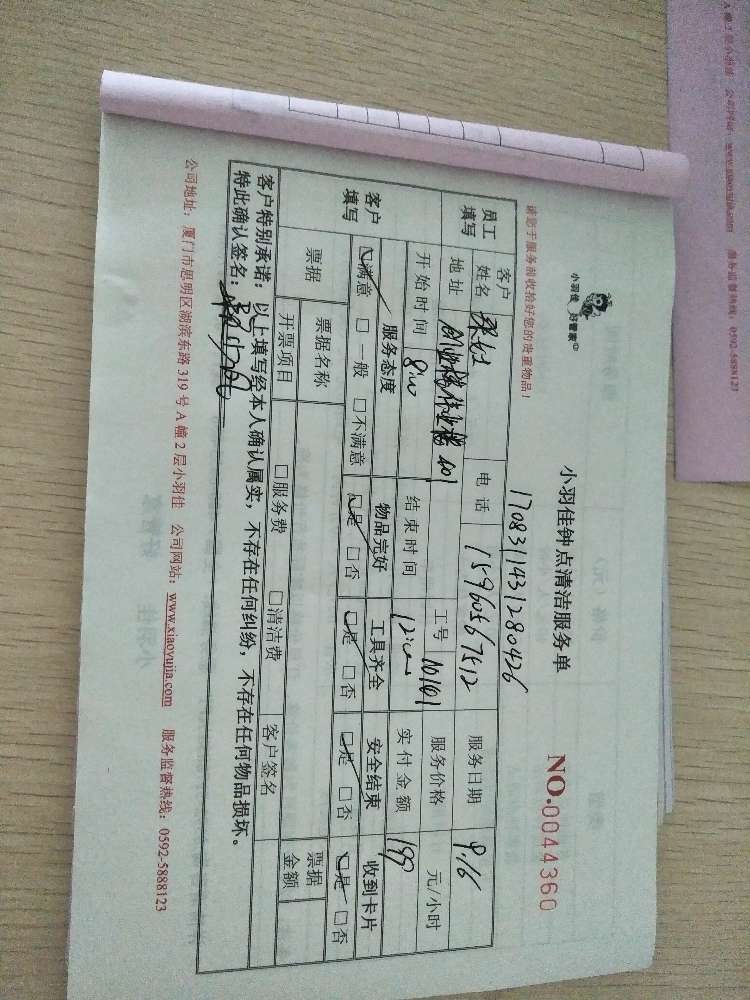 小羽佳 好管家
小羽佳钟点清洁服务单
NO.0044360
请您于服务前收拾好您的贵重物品！
1708311431280426
员工填写 客户姓名 电话 15960567512 服务日期 9.16
地址 401 工号 10101 服务价格 元/小时
客户填写 开始时间 8:00 结束时间 12:00 实付金额 199
服务态度 物品完好 工具齐全 安全结束 收到卡片
满意 一般 不满意 是 否 是 否 是 否 是 否
票据 票据名称 客户签名 票据金额
开票项目 服务费 清洁费
客户特别承诺：以上填写经本人确认属实，不存在任何纠纷，不存在任何物品损坏。
特此确认签名：
公司地址：厦门市思明区湖滨东路 319 号 A 幢 2 层小羽佳 公司网站：www.xiaoyujia.com 服务监督热线：0592-5888123
A 幢 2 层小羽佳 公司网站：www.xiaoyujia.com 服务监督热线：0592-5888123